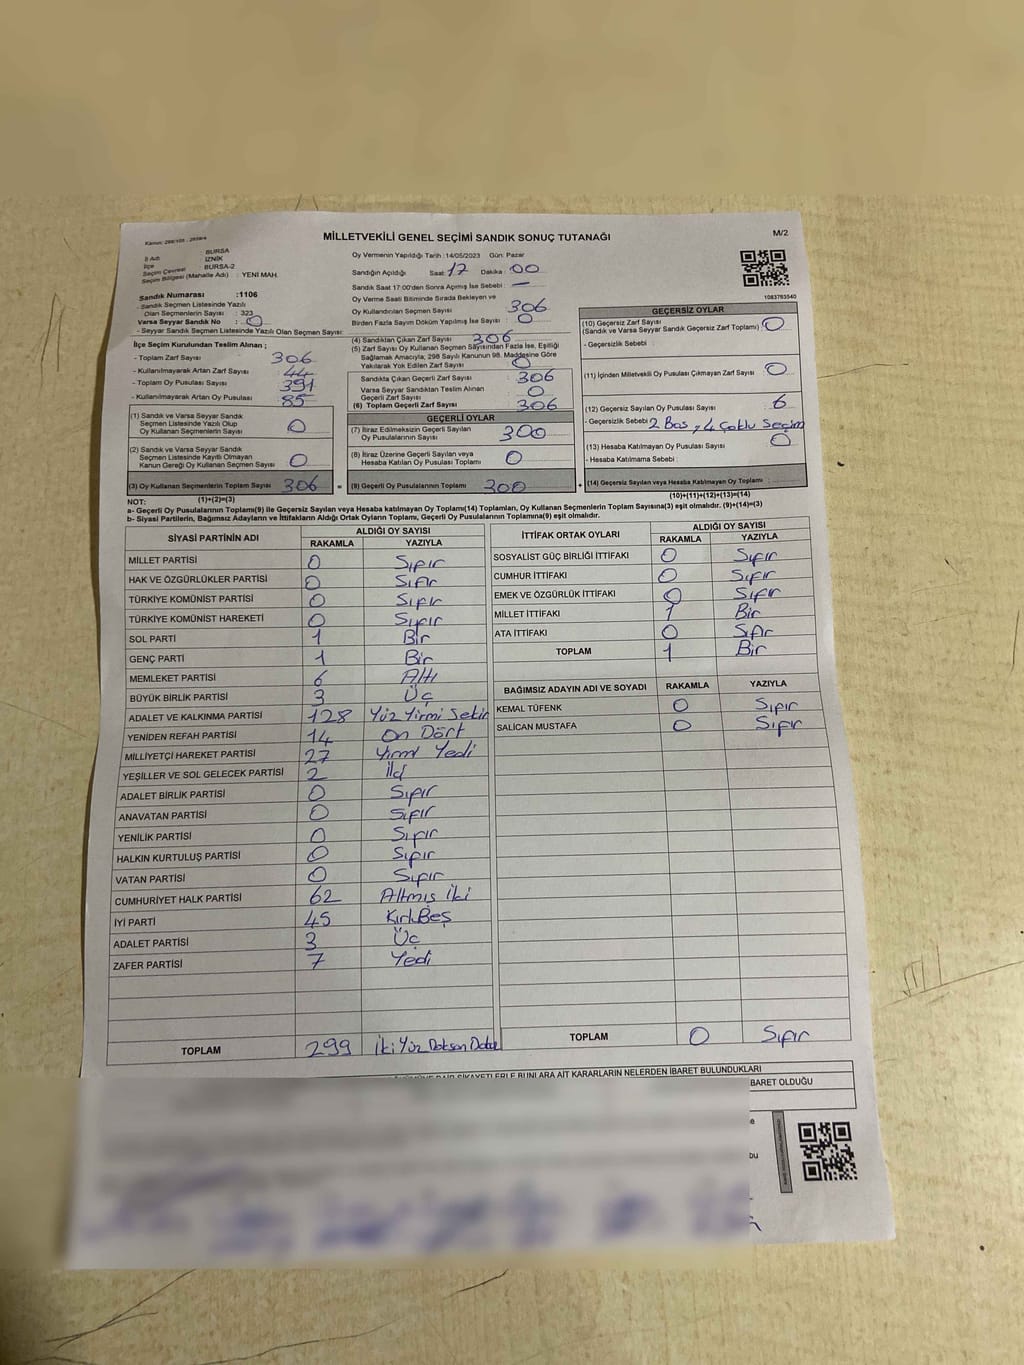 Kanun: 298/105 - 2839/4
MİLLETVEKİLİ GENEL SEÇİMİ SANDIK SONUÇ TUTANAĞI
M/2
İl Adı : BURSA
İlçe : İZNİK
Seçim Çevresi : BURSA-2
Seçim Bölgesi (Mahalle Adı) : YENİ MAH.
Sandık Numarası :1106
- Sandık Seçmen Listesinde Yazılı
Olan Seçmenlerin Sayısı : 323
Varsa Seyyar Sandık No : 0
- Seyyar Sandık Seçmen Listesinde Yazılı Olan Seçmen Sayısı:
Oy Vermenin Yapıldığı Tarih :14/05/2023 Gün: Pazar
Sandığın Açıldığı Saat: 17 Dakika : 00
Sandık Saat 17:00'den Sonra Açılmış İse Sebebi : —
Oy Verme Saati Bitiminde Sırada Bekleyen ve
Oy Kullandırılan Seçmen Sayısı : 306
Birden Fazla Sayım Döküm Yapılmış İse Sayısı : 0
1083763540
İlçe Seçim Kurulundan Teslim Alınan ;
- Toplam Zarf Sayısı 306
- Kullanılmayarak Artan Zarf Sayısı : 44
- Toplam Oy Pusulası Sayısı : 391
- Kullanılmayarak Artan Oy Pusulası : 85
(1) Sandık ve Varsa Seyyar Sandık
Seçmen Listesinde Yazılı Olup
Oy Kullanan Seçmenlerin Sayısı : 0
(2) Sandık ve Varsa Seyyar Sandık
Seçmen Listesinde Kayıtlı Olmayan
Kanun Gereği Oy Kullanan Seçmen Sayısı : 0
(3) Oy Kullanan Seçmenlerin Toplam Sayısı : 306
(4) Sandıktan Çıkan Zarf Sayısı : 306
(5) Zarf Sayısı Oy Kullanan Seçmen Sayısından Fazla İse, Eşitliği
Sağlamak Amacıyla; 298 Sayılı Kanunun 98. Maddesine Göre
Yakılarak Yok Edilen Zarf Sayısı : 0
Sandıkta Çıkan Geçerli Zarf Sayısı : 306
Varsa Seyyar Sandıktan Teslim Alınan
Geçerli Zarf Sayısı : 0
(6) Toplam Geçerli Zarf Sayısı : 306
GEÇERLİ OYLAR
(7) İtiraz Edilmeksizin Geçerli Sayılan
Oy Pusulalarının Sayısı : 300
(8) İtiraz Üzerine Geçerli Sayılan veya
Hesaba Katılan Oy Pusulası Toplamı : 0
= (9) Geçerli Oy Pusulalarının Toplamı : 300
GEÇERSİZ OYLAR
(10) Geçersiz Zarf Sayısı
(Sandık ve Varsa Seyyar Sandık Geçersiz Zarf Toplamı) : 0
- Geçersizlik Sebebi :
(11) İçinden Milletvekili Oy Pusulası Çıkmayan Zarf Sayısı : 0
(12) Geçersiz Sayılan Oy Pusulası Sayısı : 6
- Geçersizlik Sebebi : 2 Boş, 4 Çoklu Seçim
(13) Hesaba Katılmayan Oy Pusulası Sayısı : 0
- Hesaba Katılmama Sebebi :
+ (14) Geçersiz Sayılan veya Hesaba Katılmayan Oy Toplamı :
NOT: (1)+(2)=(3) (10)+(11)+(12)+(13)=(14)
a- Geçerli Oy Pusulalarının Toplamı(9) ile Geçersiz Sayılan veya Hesaba katılmayan Oy Toplamı(14) Toplamları, Oy Kullanan Seçmenlerin Toplam Sayısına(3) eşit olmalıdır. (9)+(14)=(3)
b- Siyasi Partilerin, Bağımsız Adayların ve İttifakların Aldığı Ortak Oyların Toplamı, Geçerli Oy Pusulalarının Toplamına(9) eşit olmalıdır.
SİYASİ PARTİNİN ADI ALDIĞI OY SAYISI
RAKAMLA YAZIYLA
MİLLET PARTİSİ 0 Sıfır
HAK VE ÖZGÜRLÜKLER PARTİSİ 0 Sıfır
TÜRKİYE KOMÜNİST PARTİSİ 0 Sıfır
TÜRKİYE KOMÜNİST HAREKETİ 0 Sıfır
SOL PARTİ 1 Bir
GENÇ PARTİ 1 Bir
MEMLEKET PARTİSİ 6 Altı
BÜYÜK BİRLİK PARTİSİ 3 Üç
ADALET VE KALKINMA PARTİSİ 128 Yüz Yirmi Sekiz
YENİDEN REFAH PARTİSİ 14 On Dört
MİLLİYETÇİ HAREKET PARTİSİ 27 Yirmi Yedi
YEŞİLLER VE SOL GELECEK PARTİSİ 2 İki
ADALET BİRLİK PARTİSİ 0 Sıfır
ANAVATAN PARTİSİ 0 Sıfır
YENİLİK PARTİSİ 0 Sıfır
HALKIN KURTULUŞ PARTİSİ 0 Sıfır
VATAN PARTİSİ 0 Sıfır
CUMHURİYET HALK PARTİSİ 62 Altmış İki
İYİ PARTİ 45 Kırk Beş
ADALET PARTİSİ 3 Üç
ZAFER PARTİSİ 7 Yedi
TOPLAM 299 İki Yüz Doksan Dokuz
İTTİFAK ORTAK OYLARI ALDIĞI OY SAYISI
RAKAMLA YAZIYLA
SOSYALİST GÜÇ BİRLİĞİ İTTİFAKI 0 Sıfır
CUMHUR İTTİFAKI 0 Sıfır
EMEK VE ÖZGÜRLÜK İTTİFAKI 0 Sıfır
MİLLET İTTİFAKI 1 Bir
ATA İTTİFAKI 0 Sıfır
TOPLAM 1 Bir
BAĞIMSIZ ADAYIN ADI VE SOYADI RAKAMLA YAZIYLA
KEMAL TÜFENK 0 Sıfır
SALİCAN MUSTAFA 0 Sıfır
TOPLAM 0 Sıfır
ŞİKAYETLERLE BUNLARA AİT KARARLARIN NELERDEN İBARET BULUNDUKLARI
BARET OLDUĞU